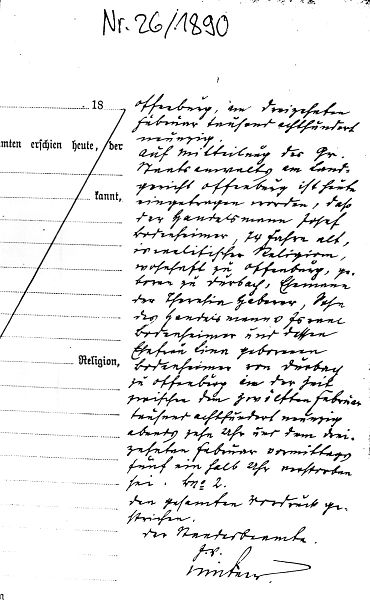 Nr. 26/1890
18
Offenburg, am dreizehnten
Februar tausend achthundert
neunzig.
mten erschien heute, der
Auf Mittheilung des Gr.
Staatsanwalts am Land-
gericht Offenburg ist heute
kannt,
eingetragen worden, daß
der Handelsmann Josef
Bodenheimer, 74 Jahre alt,
israelitischer Religion,
wohnhaft zu Offenburg, ge-
boren zu Durbach, Ehemann
der Theresia Haberer, Sohn
des Handelsmanns Israel
Bodenheimer und dessen
Ehefrau Lina geborenen
Religion,
Bodenheimer von Durbach
zu Offenburg in der Zeit
zwischen dem zwölften Februar
tausend achthundert neunzig
abends zehn Uhr und dem drei-
zehnten Februar vormittags
fünf ein halb Uhr verstorben
sei.
den gesamten Vordruck ge-
strichen.
Der Standesbeamte.
J.V.